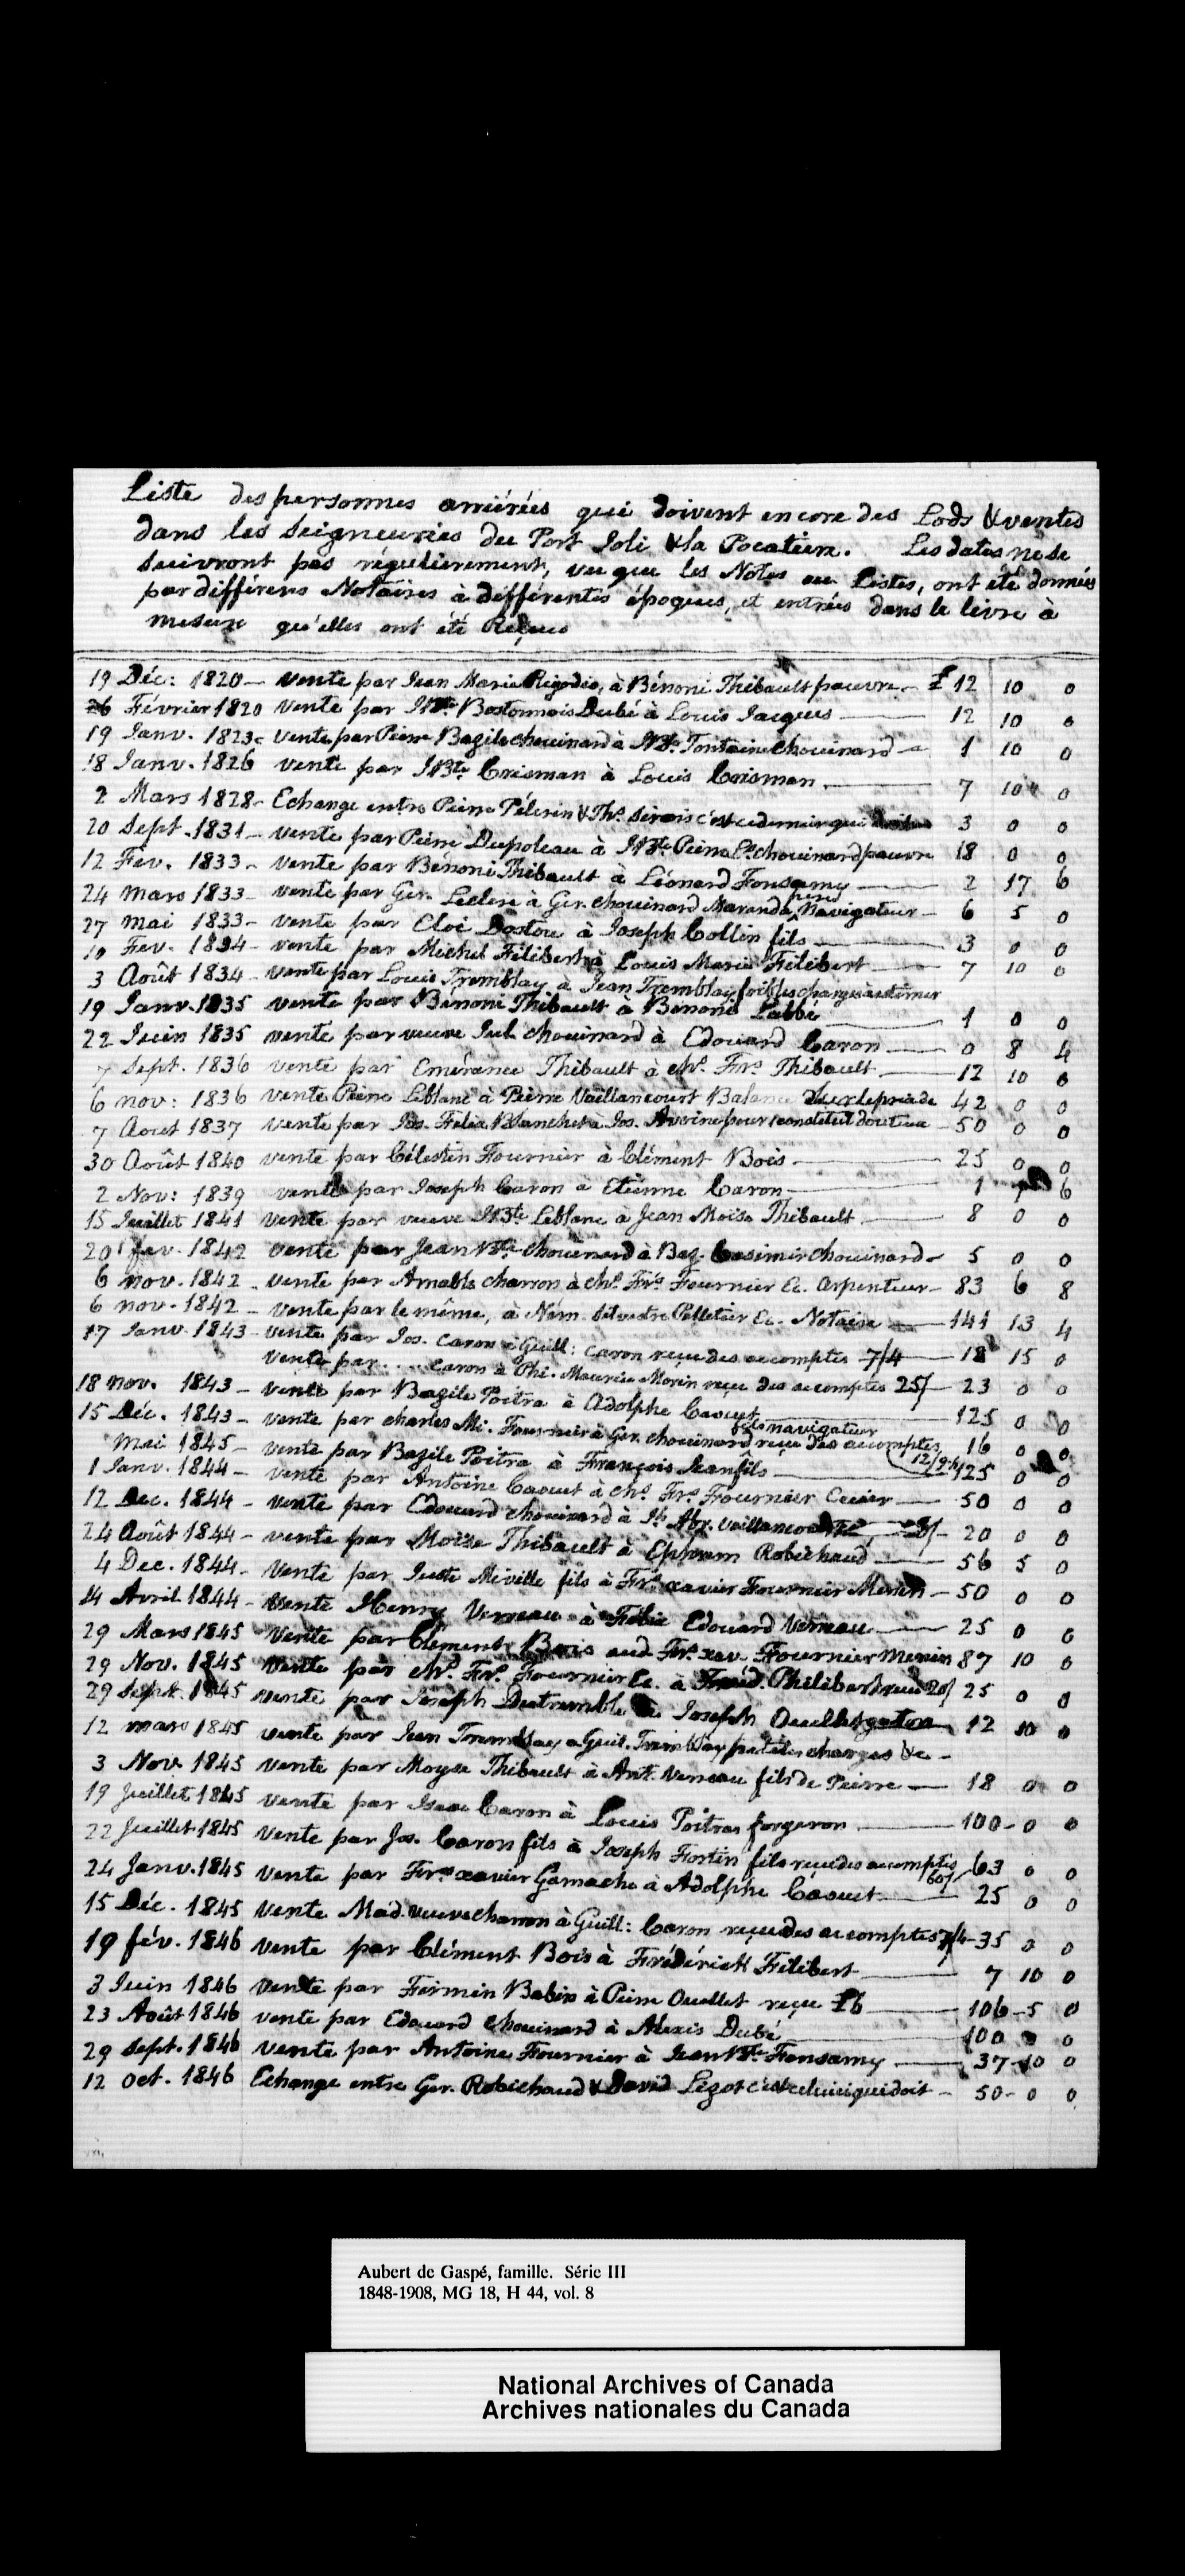 Liste des personnes arriérées qui doivent encore des Lods & ventes
dans les Seigneuries du Port Joli & la Pocatiere. Les dates ne se
suivront pas régulierement, vu que les Notes ou Listes, ont été données
par différens Notaires à différentes époques, et entrées dans le livre à
mesure qu'elles ont été Reçues
19 Déc: 1820 — vente par Jean Marie Rigodio, à Bénoni Thibault pauvre — £ 12 10 0
26 Février 1820 vente par J. Bte Bostonnais Dubé à Louis Jacques — 12 10 0
19 Janv. 1823 vente par Pierre Bazile chouinard à J. Bte Fontaine Chouinard — 1 10 0
18 Janv. 1826 vente par J Bte Crisman à Louis Crisman — 7 10 0
2 Mars 1828 - Echange entre Pierre Pélerin & Ths. Sirois c'est ce dernier qui 3 0 0
20 Sept. 1831 — vente par Pierre Dupoleau à J. Bte Pierre Ls. chouinard pauvre 18 0 0
12 Fev. 1833 - vente par Bénoni Thibault à Léonard Fonsamy — 2 17 6
24 mars 1833 - vente par Ger. Leclerc à Ger. chouinard Maranda, Navigateur — 6 5 0
27 mai 1833 - vente par Eloi Dostou à Joseph Collin fils — 3 0 0
10 Fev. 1834 - vente par Michel Filibert à Louis Marie Filibert — 7 10 0
3 Août 1834 - vente par Louis Tremblay à Jean Tremblay les charges à estimer
19 Janv. 1835 vente par Bénoni Thibault à Bénoni Labbé — 1 0 0
22 Juin 1835 vente par veuve Jul. chouinard à Edouard Caron — 0 8 4
7 Sept. 1836 vente par Emérance Thibault à Chs. Frs. Thibault — 12 10 0
6 nov: 1836 vente Pierre Leblanc à Pierre Vaillancourt Balance 42 0 0
7 Aout 1837 vente par Jos. Felix Blanchet à Jos. Averine pour constitut douteux — 50 0 0
30 Août 1840 vente par Célestin Fournier à Clément Bois — 25 0 0
2 Nov: 1839 vente par Joseph Caron à Etienne Caron — 1 7 6
15 Juillet 1841 vente par veuve J. Bte Leblanc à Jean Moïse Thibault — 8 0 0
20 fev. 1842 vente par Jean Bte chouinard à Baz. Casimir chouinard — 5 0 0
6 nov. 1842 - vente par Amable charron à Chs. Frs. Fournier Ec. Arpenteur — 83 6 8
6 nov. 1842 - vente par le même, à Silvestre Pelletier Ec. Notaire — 141 13 4
17 Janv. 1843 - vente par Jos. Caron à Guill: Caron reçu des acomptes 7/4 — 18 15 0
vente par .... Caron à Phi. Maurice Morin reçu des acomptes 25/ — 23 0 0
18 nov. 1843 - vente par Bazile Poitra à Adolphe Caouet — 125 0 0
15 Déc. 1843 - vente par charles Mi. Fournier à Ger. chouinard fils navigateur reçu des acomptes 12/9 16 0 0
mai 1845 - vente par Bazile Poitra à François Jean fils — 125 0 0
1 Janv. 1844 - vente par Antoine Caouet à Chs. Frs. Fournier Ecuier — 50 0 0
12 Dec. 1844 - vente par Edouard chouinard à Abr. Vaillancourt — 20 0 0
24 Août 1844 - vente par Moïse Thibault à Ephrem Robichaud — 56 5 0
4 Dec. 1844 - vente par Juste Miville fils à Frs. xavier Fournier Menin — 50 0 0
14 Avril 1844 - Vente Henry Verreau à Félix Edouard Verreau — 25 0 0
29 Mars 1845 vente par Clément Bois aud. Frs. xav. Fournier Menin 87 10 0
29 Nov. 1845 vente par Chs. Frs. Fournier Ec. à Fréd. Philibert reçu 20/ 25 0 0
29 Sept. 1845 vente par Joseph Destremble à Joseph Ouellet — 12 10 0
12 mars 1845 vente par Jean Tremblay à Guil. Tremblay charges &c —
3 Nov. 1845 vente par Moyse Thibault à Ant. Verreau fils de Pierre — 18 0 0
19 Juillet 1845 vente par Isaac Caron à Louis Poitras forgeron — 100 - 0 0
22 Juillet 1845 vente par Jos. Caron fils à Joseph Fortin fils reçu des acomptes 60/ 63 0 0
24 Janv. 1845 vente par Frs. xavier Gamache à Adolphe Caouet — 25 0 0
15 Déc. 1845 vente Mad. veuve charron à Guill: Caron reçu des acomptes 7/4 - 35 0 0
19 fév. 1846 vente par Clément Bois à Frédérick Filibert — 7 10 0
3 Juin 1846 vente par Firmin Babin à Pierre Ouellet reçu £6 — 106 - 5 0
23 Août 1846 vente par Edouard Chouinard à Alexis Dubé — 100 0 0
29 sept. 1846 vente par Antoine Fournier à Jean Bte Fonsamy — 37 - 10 0
12 oct. 1846 Echange entre Ger. Robichaud & David Lizot c'est celui ci qui doit — 50 - 0 0
Aubert de Gaspé, famille. Série III
1848-1908, MG 18, H 44, vol. 8
National Archives of Canada
Archives nationales du Canada